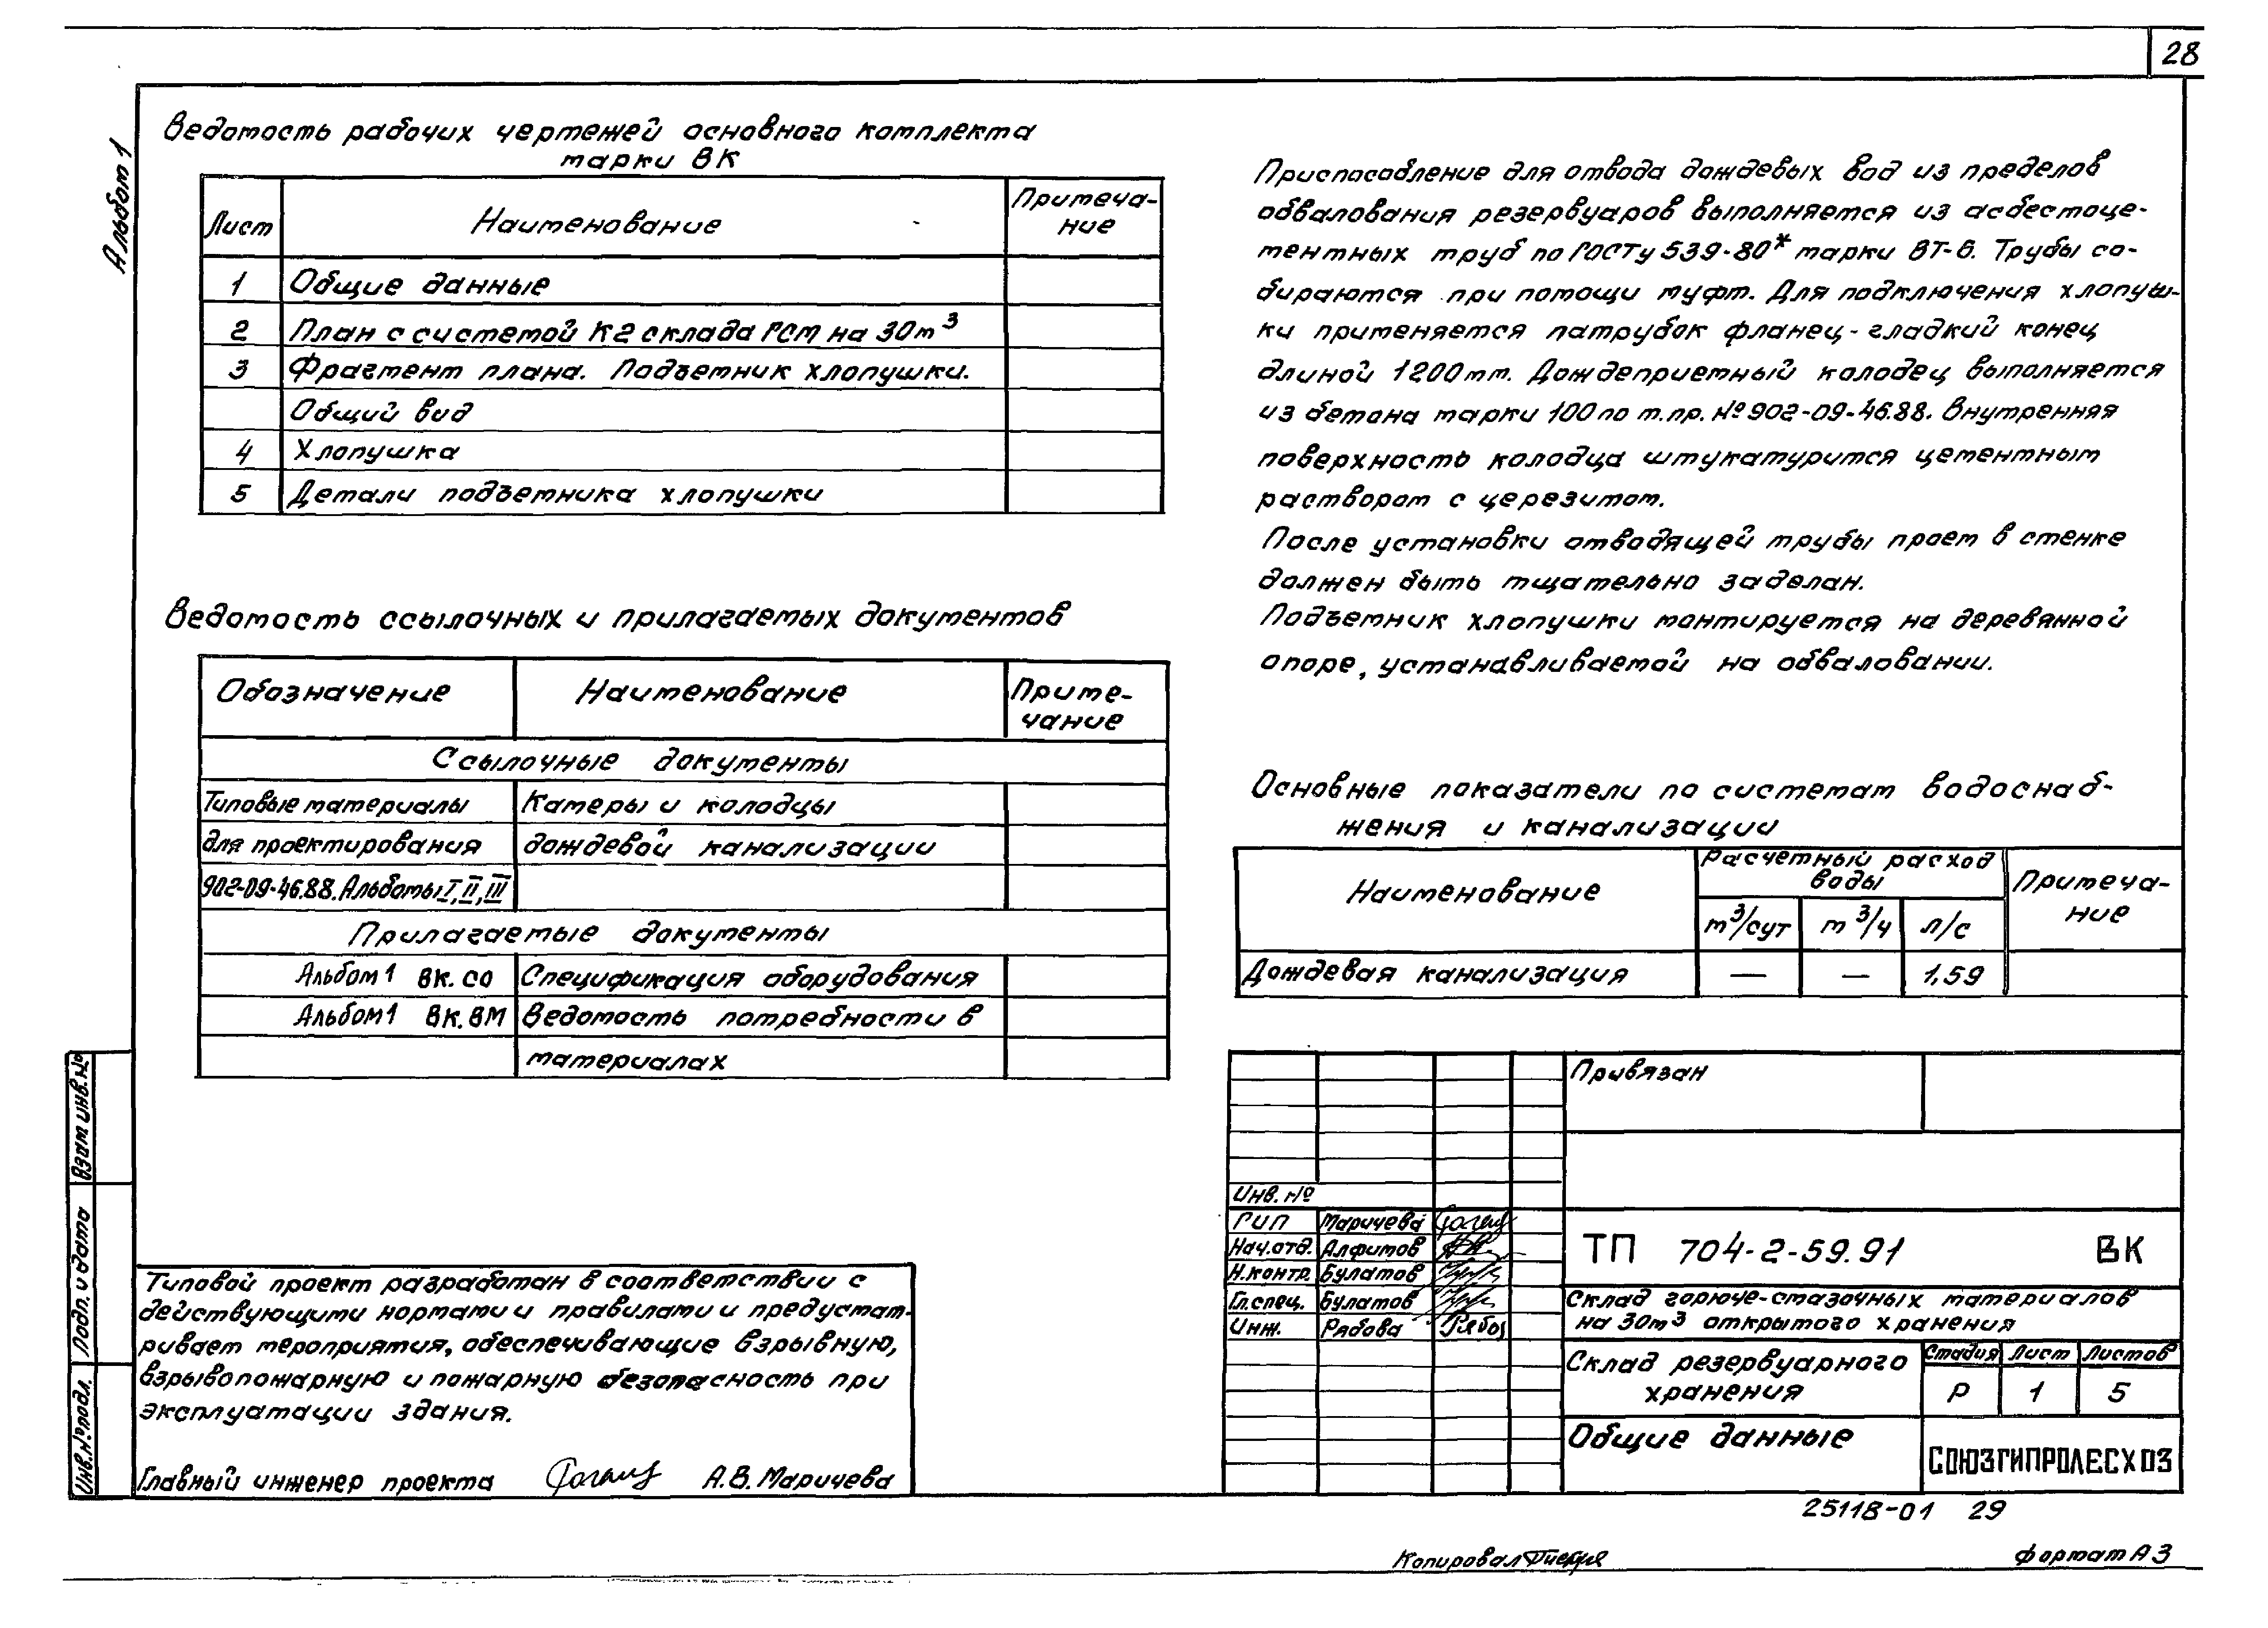 28
Альбом 1
Ведомость рабочих чертежей основного комплекта
марки ВК
Лист Наименование Примеча-
ние
1 Общие данные
2 План с системой К2 склада ГСМ на 30м³
3 Фрагмент плана. Подъемник хлопушки.
Общий вид
4 Хлопушка
5 Детали подъемника хлопушки
Ведомость ссылочных и прилагаемых документов
Обозначение Наименование Приме-
чание
Ссылочные документы
Типовые материалы Камеры и колодцы
для проектирования дождевой канализации
902-09-46.88. Альбомы I, II, III
Прилагаемые документы
Альбом 1 ВК.СО Спецификация оборудования
Альбом 1 ВК.ВМ Ведомость потребности в
материалах
Типовой проект разработан в соответствии с
действующими нормами и правилами и предусмат-
ривает мероприятия, обеспечивающие взрывную,
взрывопожарную и пожарную безопасность при
эксплуатации здания.
Главный инженер проекта А.В. Маричева
Приспособление для отвода дождевых вод из пределов
обвалования резервуаров выполняется из асбестоце-
ментных труб по ГОСТу 539-80* марки ВТ-6. Трубы со-
бираются при помощи муфт. Для подключения хлопуш-
ки применяется патрубок фланец-гладкий конец
длиной 1200мм. Дождеприемный колодец выполняется
из бетона марки 100 по т.пр. № 902-09-46.88. Внутренняя
поверхность колодца штукатурится цементным
раствором с церезитом.
После установки отводящей трубы проем в стенке
должен быть тщательно заделан.
Подъемник хлопушки монтируется на деревянной
опоре, устанавливаемой на обваловании.
Основные показатели по системам водоснаб-
жения и канализации
Наименование Расчетный расход
воды Примеча-
ние
м³/сут м³/ч л/с
Дождевая канализация — — 1,59
Привязан
Инв. №
ГИП Маричева
Нач.отд. Алфимов
Н.контр. Булатов
Гл.спец. Булатов
Инж. Рябова
ТП 704-2-59.91 ВК
Склад горюче-смазочных материалов
на 30м³ открытого хранения
Склад резервуарного
хранения
Стадия Лист Листов
Р 1 5
Общие данные
СОЮЗГИПРОЛЕСХОЗ
Взам инв.№
Подп. и дата
Инв.№ подл.
25118-01 29
Копировал
Формат А3